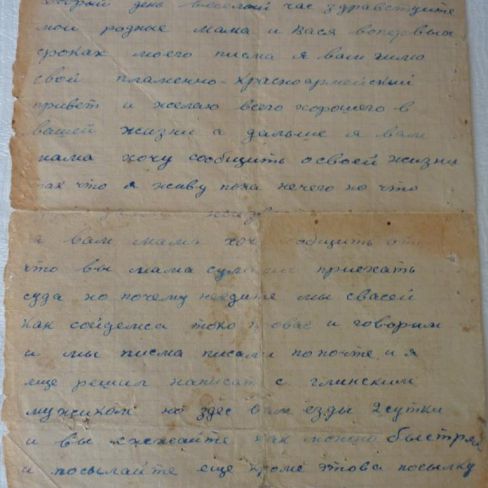 добрый день веселый час здравствуйте
мои родные мама и Вася вопервых
строках моего писма я вам шлю
свой пламенно-красноармейский
привет и желаю всего хорошего в
вашей жизни а дальше я вам
мама хочу сообщить о своей жизни
так что я живу пока нечего но что
а вам мама хочу сообщить
что вы мама приехать
суда но почему неедите мы свасей
как сойдемса токо провас и говорим
и мы писма писали попочте и я
еще решил написат с глинским
мужиком но здес вам езды 2 сутки
и вы как можно быстрей
и посылайте еще кроме этова посылку